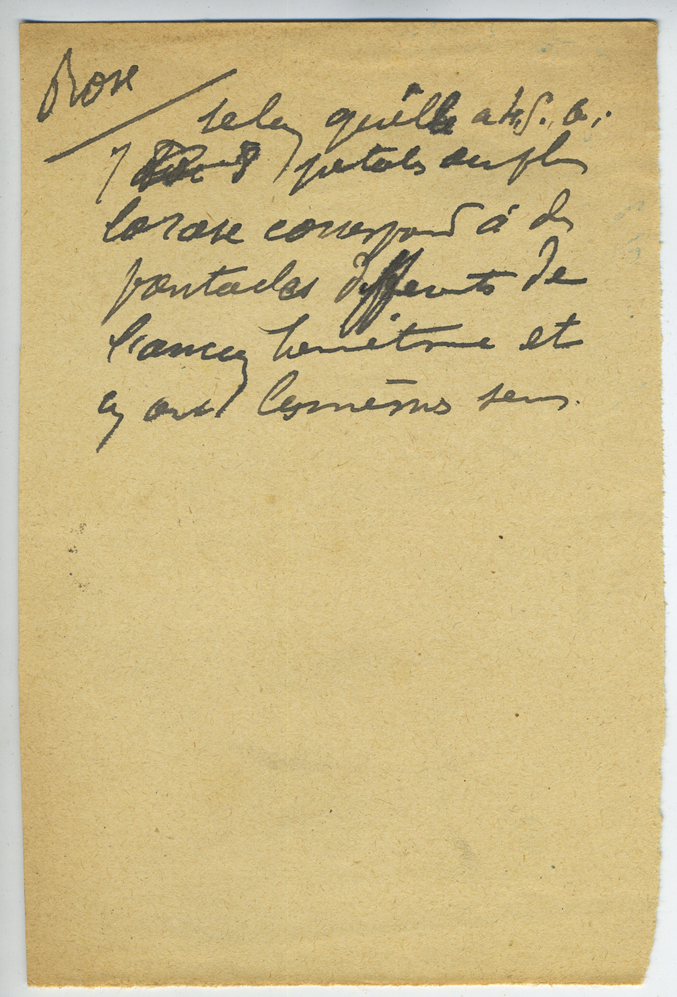 Rose
selon qu'elle a 4, 5, 6,
7 8 petales ou plus
la rose correspond à des
pentacles différents de
l'ancien hermétisme et
en ont les mêmes sens.